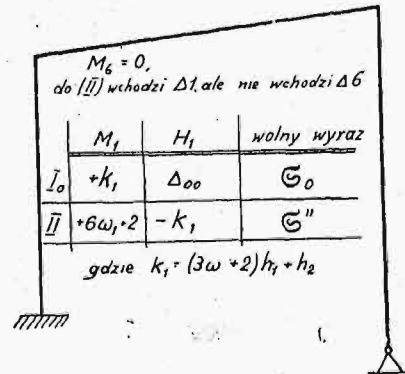 M₆ = 0,
do (II) wchodzi Δ1, ale nie wchodzi Δ6
M₁ H₁ wolny wyraz
I₀ +k₁ Δ₀₀ 𝔖₀
II +6ω₁+2 -k₁ 𝔖"
gdzie k₁ = (3ω+2)h₁+h₂